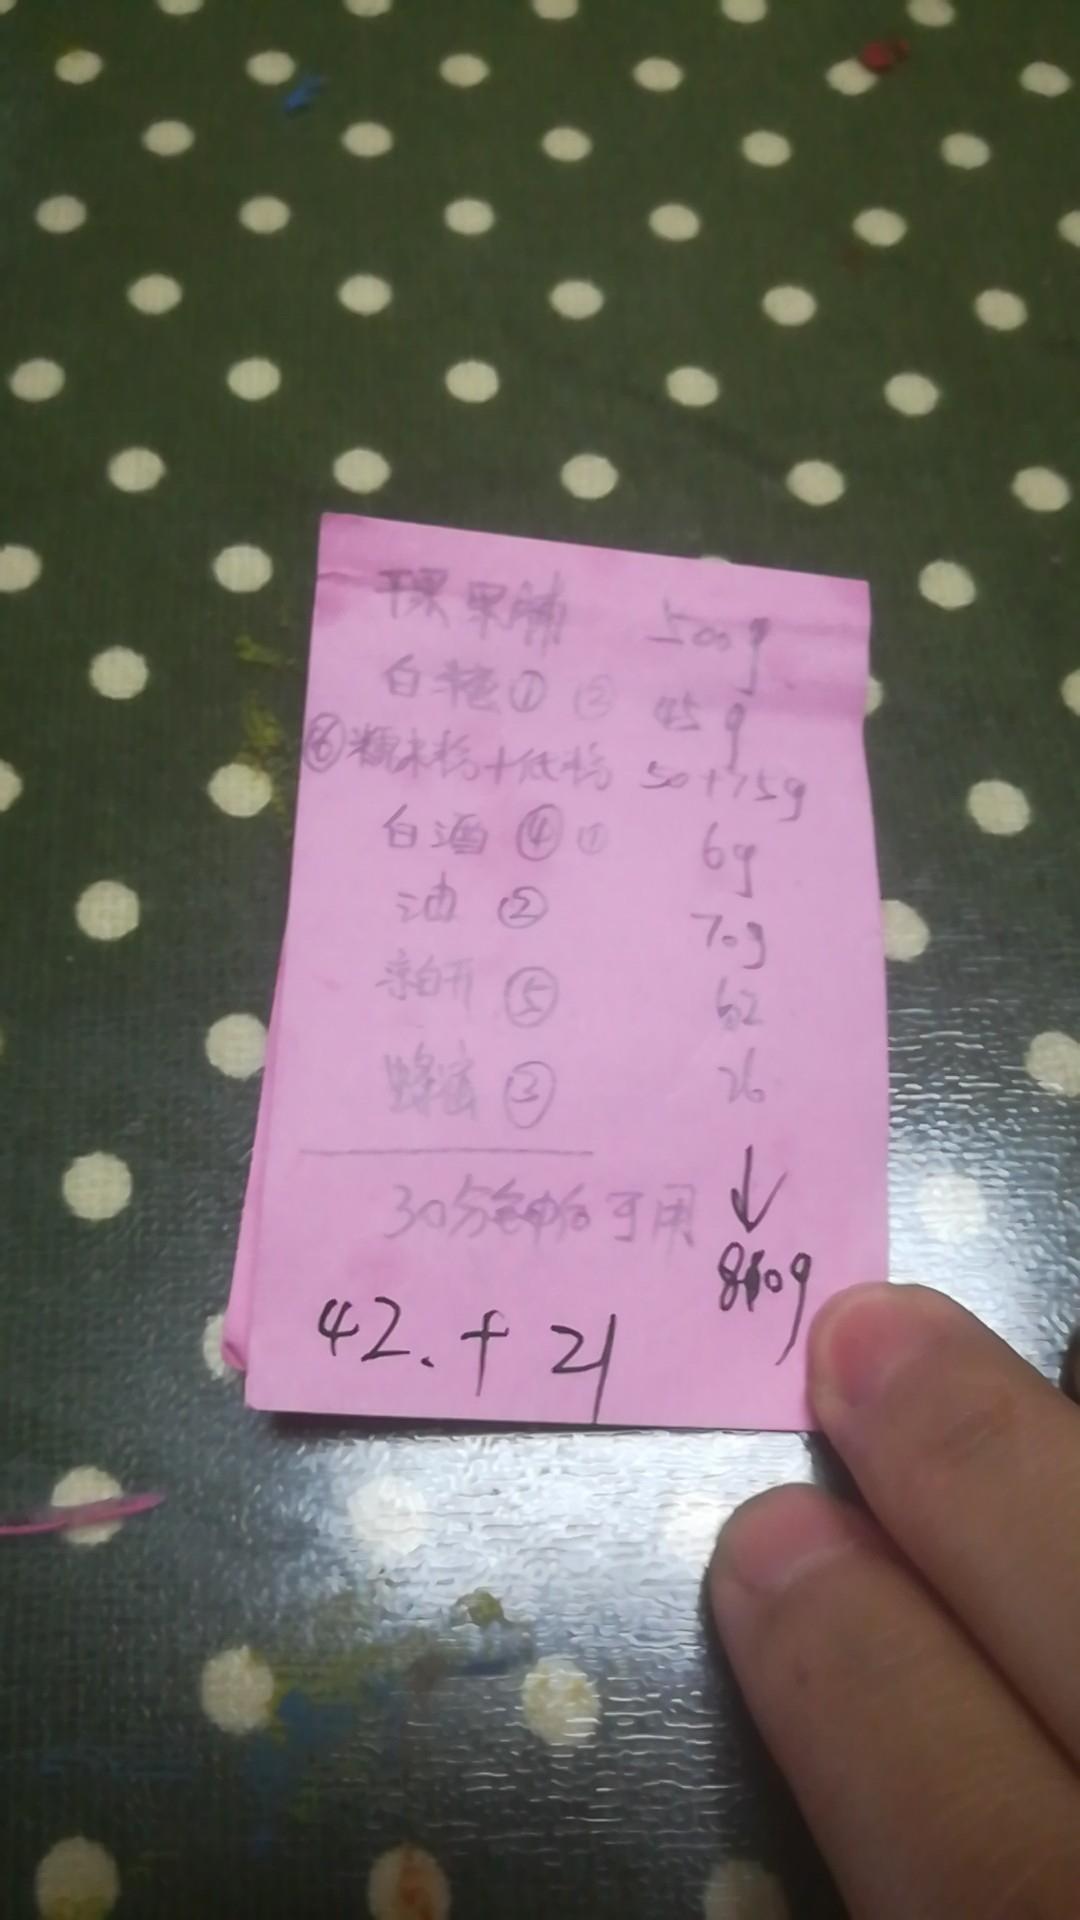 干果果脯 500g
白糖① ② 45g
⑥糯米粉+低粉 50+75g
白酒④ ① 6g
油② 70g
凉白开⑤ 62
蜂蜜③ 26
↓
30分钟后可用
810g
42.+21